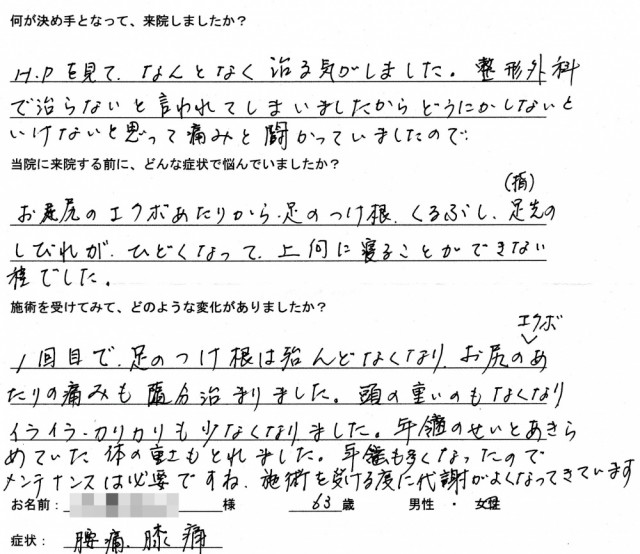 何が決め手となって、来院しましたか？
H.Pを見て、なんとなく治る気がしました。整形外科
で治らないと言われてしまいましたからどうにかしないと
いけないと思って痛みと闘かっていましたので、
当院に来院する前に、どんな症状で悩んでいましたか？
(指)
お尻のエクボあたりから、足のつけ根、くるぶし、足先の
しびれが、ひどくなって、上向に寝ることができない
様でした。
施術を受けてみて、どのような変化がありましたか？
エクボ
1回目で、足のつけ根は殆んどなくなり、お尻のあ
たりの痛みも随分治まりました。頭の重いのもなくなり
イライラ・カリカリも少なくなりました。年齢のせいとあきら
めていた体の重さもとれました。年齢も多くなったので
メンテナンスは必要ですね、施術を受ける度に代謝がよくなってきています
お名前： 様 63 歳 男性 ・ 女性
症状： 腰痛、膝痛